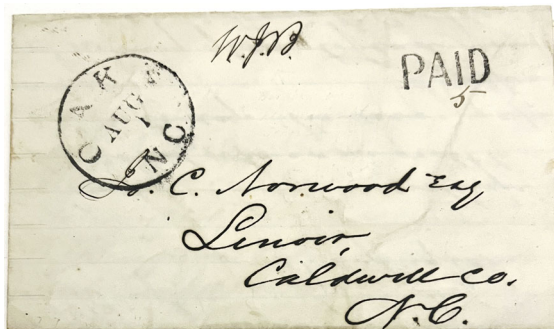 W.J.B.
PAID
5
CARY
AUG
1
NC
Jo. C. Norwood Esq
Lenoir,
Caldwell co.
N.C.